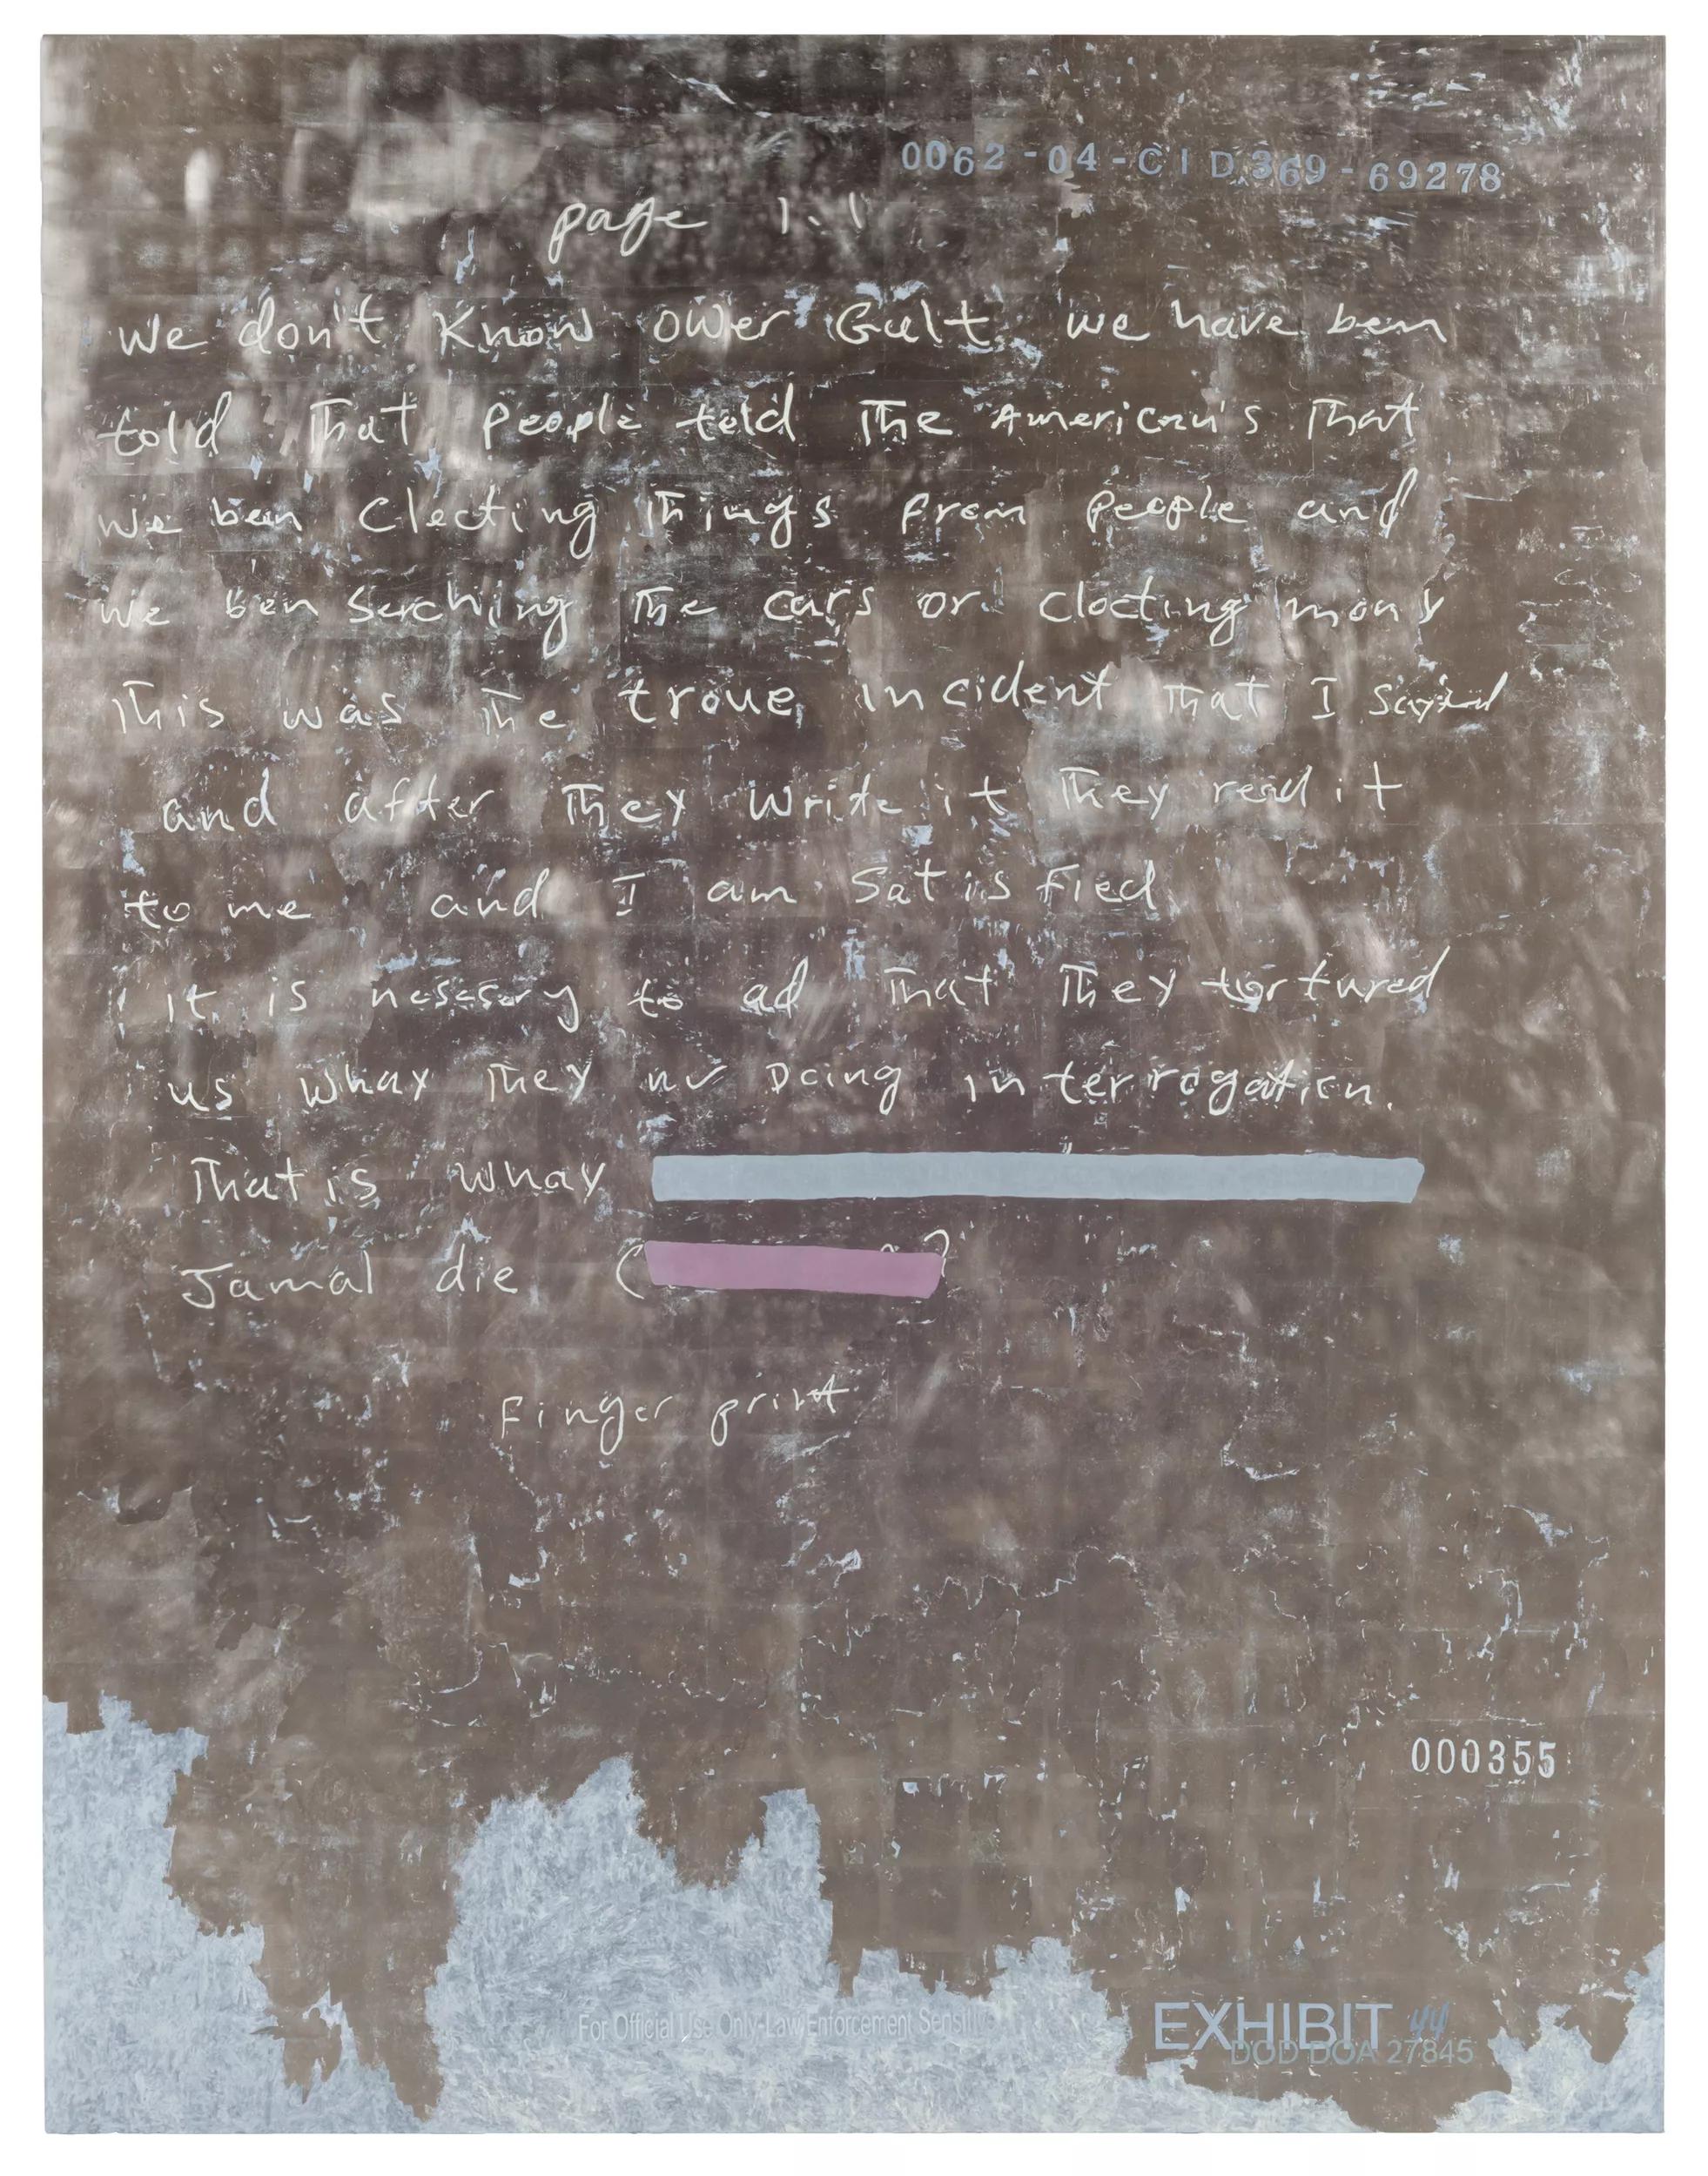 0062-04-CID369-69278
page 1.1
We don't Know ower Gult we have ben
told That People told The American's That
we ben Clecting Things from People and
we ben Serching The cars or clocting mony
This was The troue incident That I
and after They write it They read it
to me and I am Satisfied
It is nesessory to ad That They tortured
us whay They Doing interrogation.
That is whay
Jamal die (
Finger print
000355
For Official Use Only-Law Enforcement Sensitive
EXHIBIT 44
DOD DOA 27845